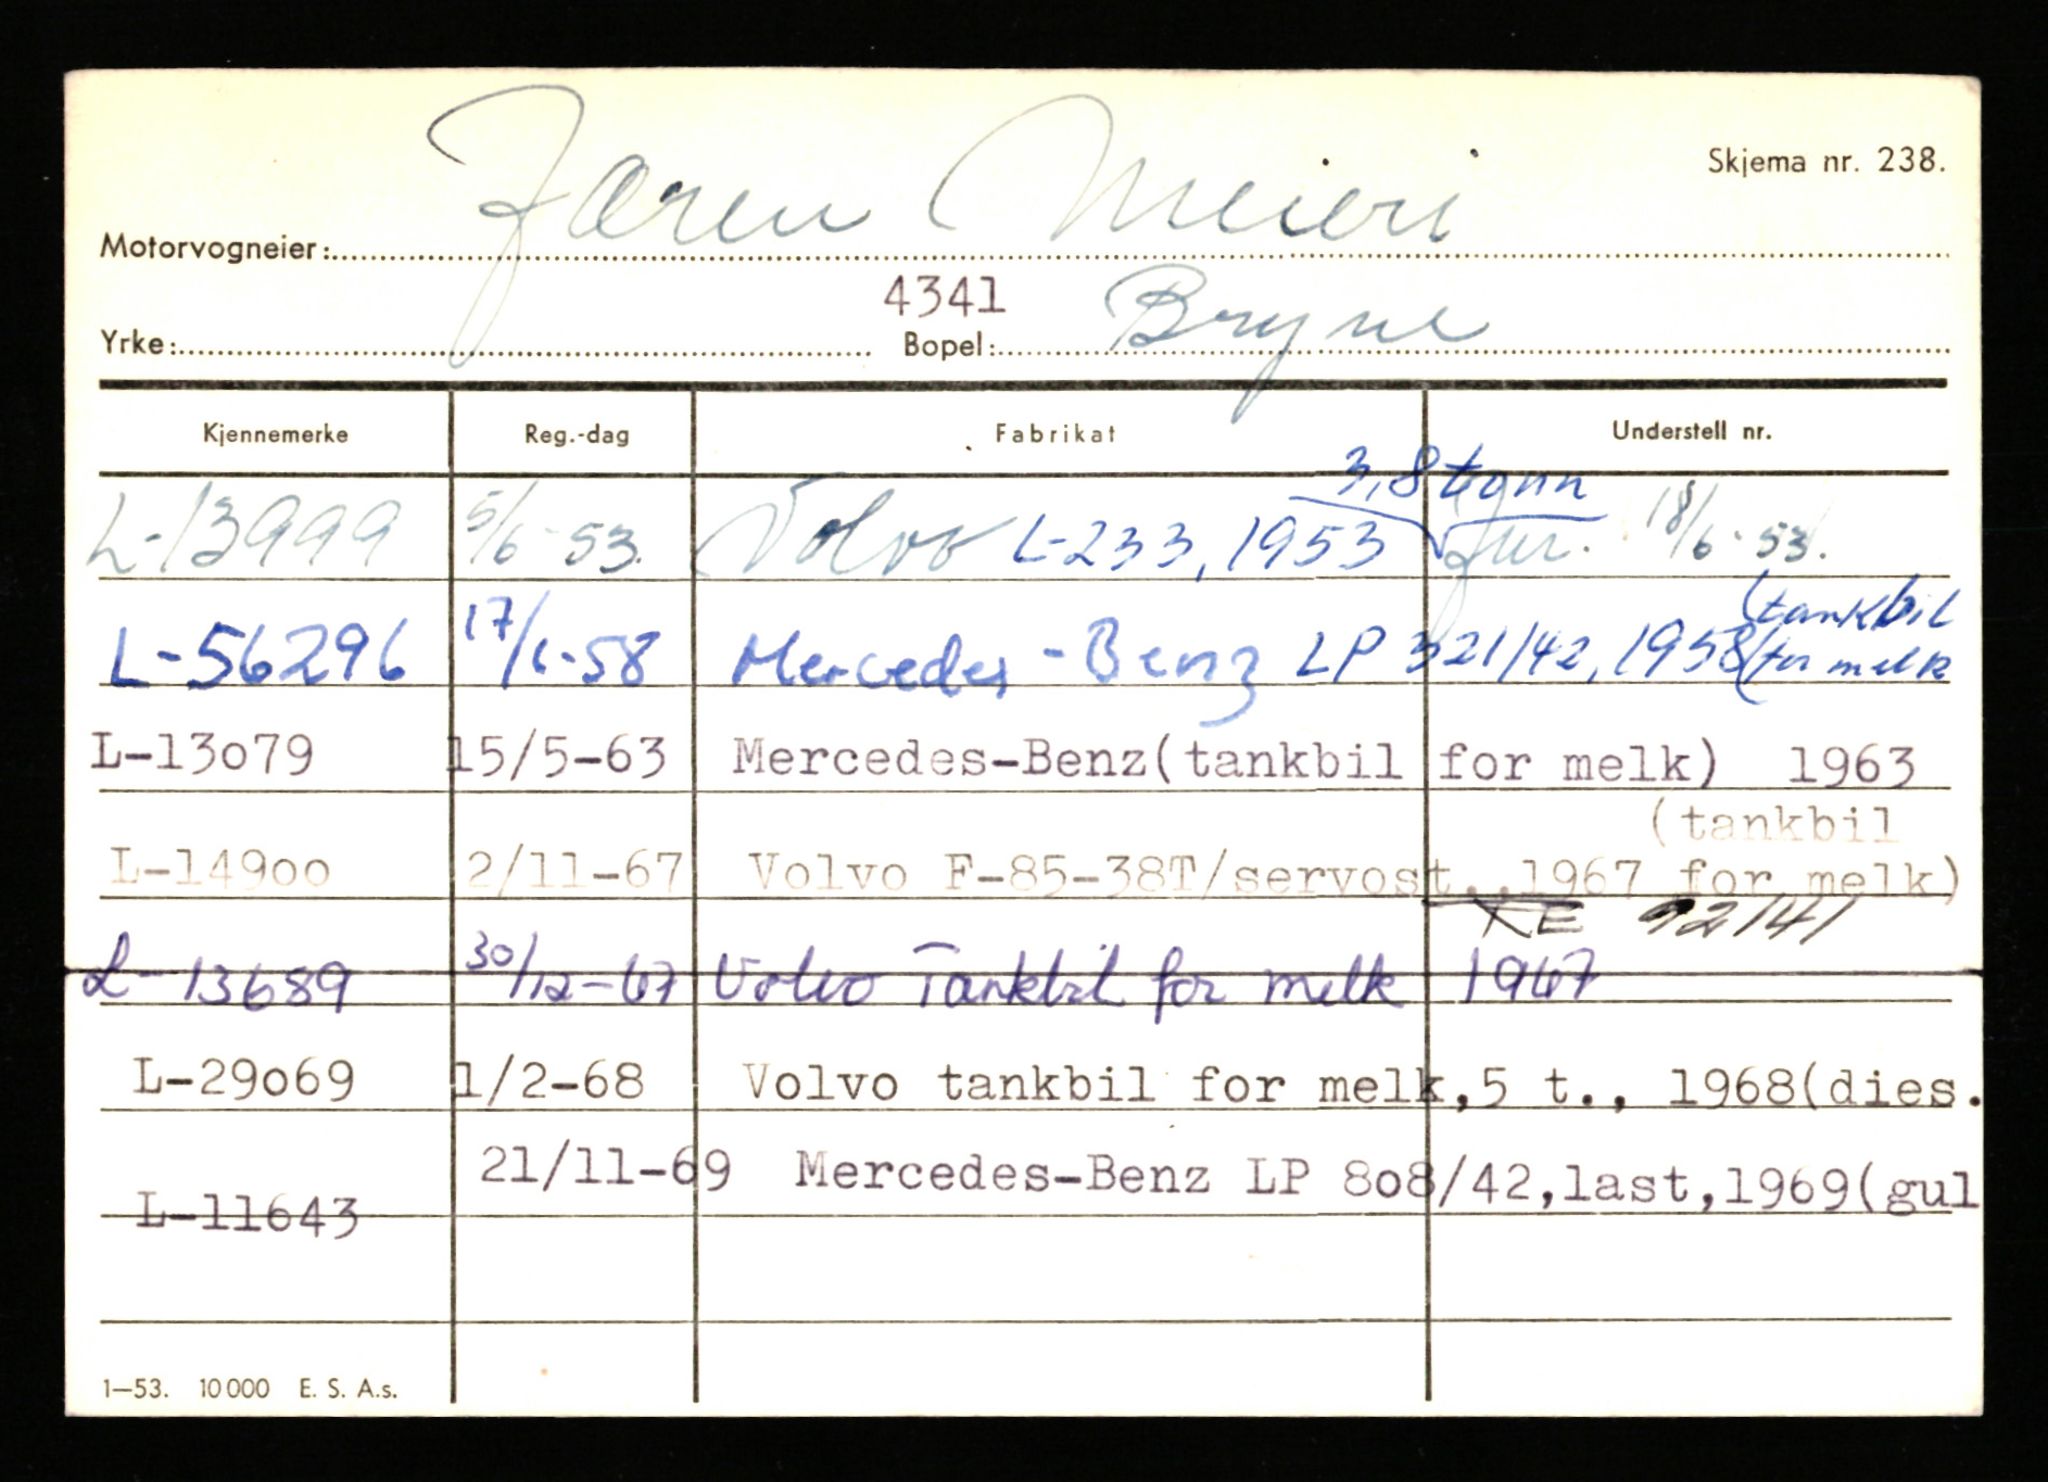 Skjema nr. 238.
Motorvogneier: Jæren Meieri
4341
Yrke: Bopel: Bryne
Kjennemerke Reg.-dag Fabrikat Understell nr.
3,8 tonn
L-13999 5/6-53. Volvo L-233, 1953 18/6-53.
(tankbil
L-56296 17/6-58 Mercedes-Benz LP 321/42, 1958 (for melk
L-13o79 15/5-63 Mercedes-Benz(tankbil for melk) 1963
(tankbil
L-149oo 2/11-67 Volvo F-85-38T/servost.,1967 for melk)
KE 92141
L-13689 30/12-67 Volvo Tankbil for melk 1967
L-29o69 1/2-68 Volvo tankbil for melk,5 t., 1968(dies.
21/11-69 Mercedes-Benz LP 8o8/42,last,1969(gul
L-11643
1—53. 10000 E. S. A.s.